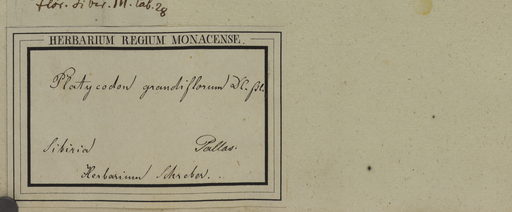 flor. Siber. III. tab. 28
HERBARIUM REGIUM MONACENSE.
Platycodon grandiflorum DC. fil.
Sibiria Pallas.
Herbarium Schreber.